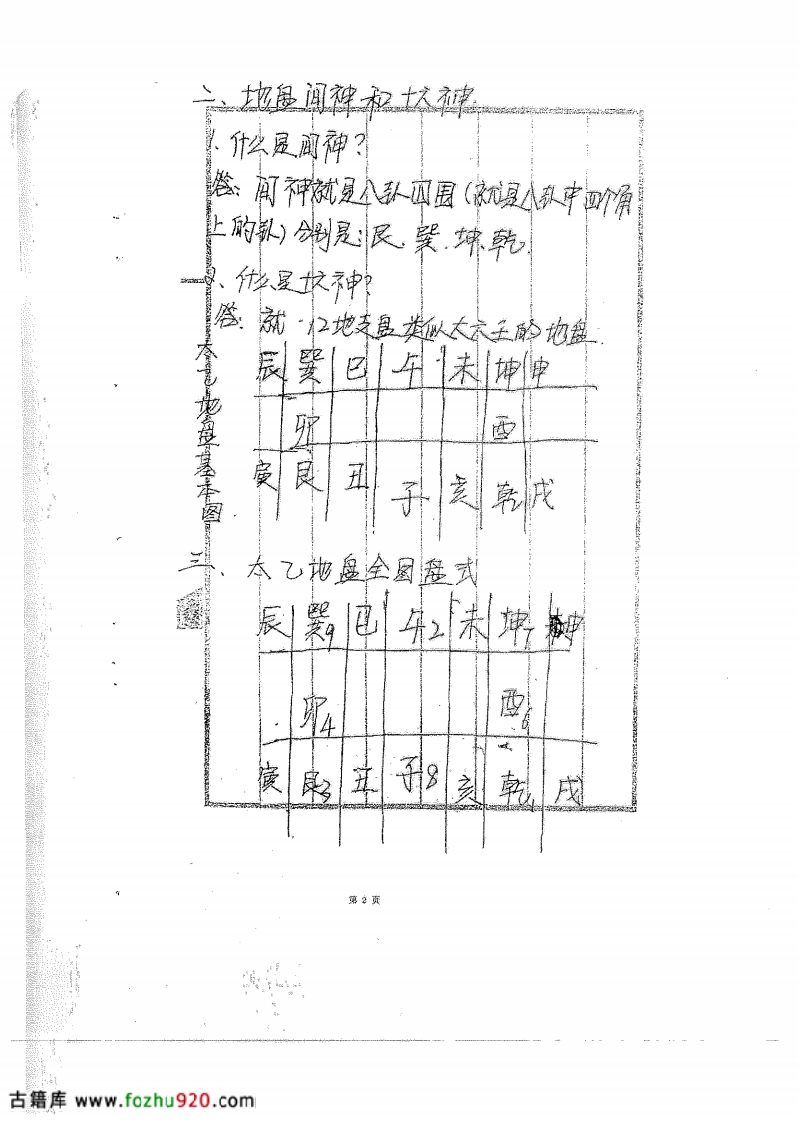 二、地盘间神和十六神
1、什么是间神?
答:间神就是八卦四围(就是八卦中四个角
上的卦)分别是:艮、巽、坤、乾.
2、什么是十六神?
答:就12地支盘类似大六壬的地盘.
太乙地盘基本图
辰 巽 巳 午 未 坤 申
卯 酉
寅 艮 丑 子 亥 乾 戌
三、太乙地盘全图盘式
辰 巽9 巳 午2 未 坤7 申
卯4 酉6
寅 艮3 丑 子8 亥 乾1 戌
第2页
古籍库 www.fozhu920.com